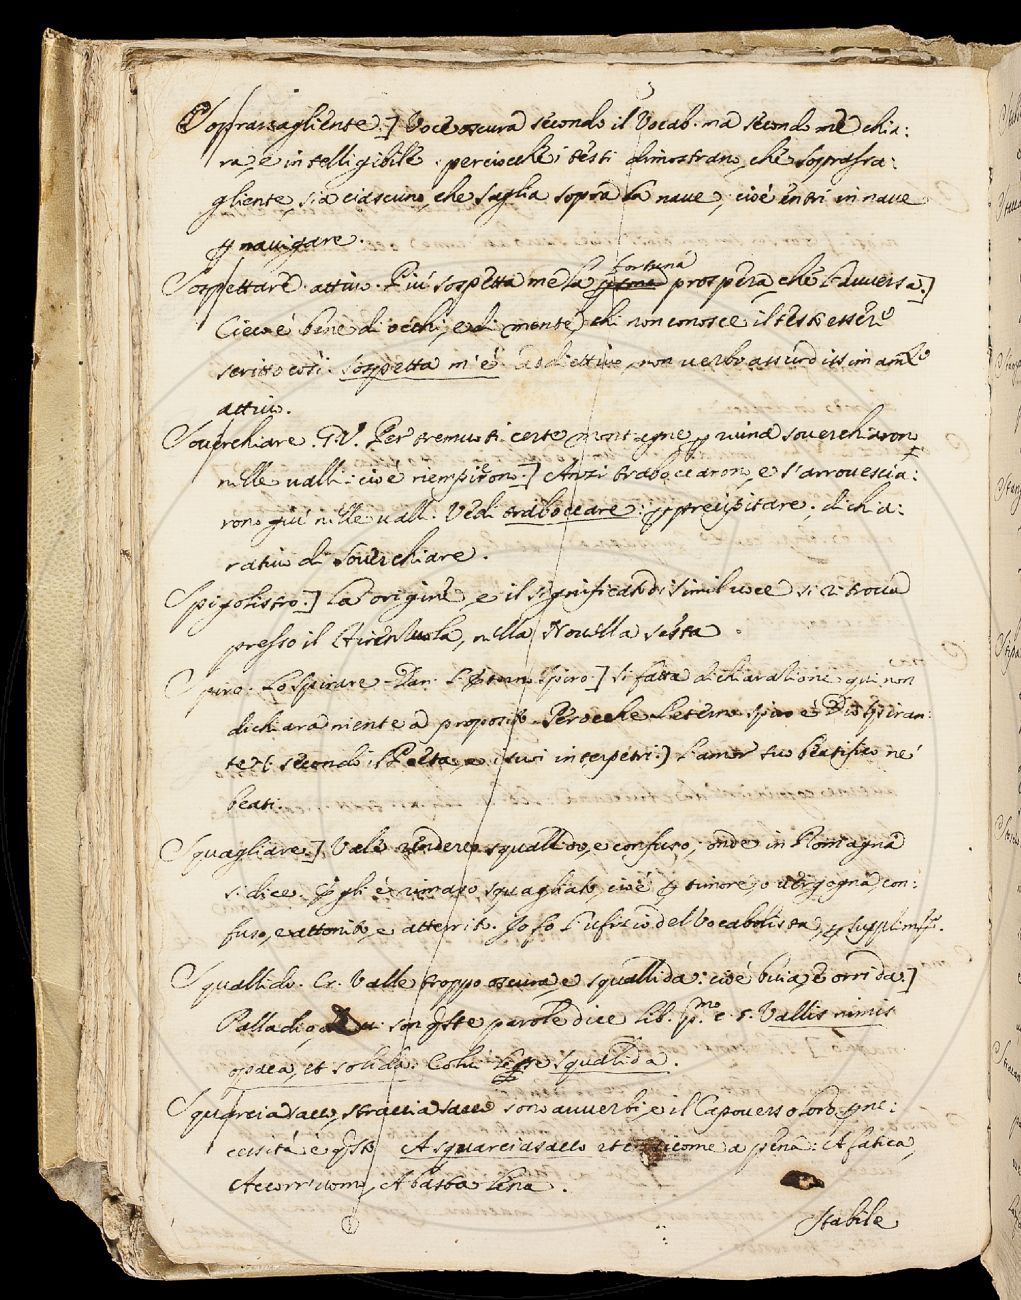 Soprassagliente.] Voce oscura secondo il Vocab. ma secondo me chia:
ra, e intelligibile. perciocchè i testi dimostrano, che soprassa:
gliente, sia ciascuno, che saglia sopra la nave, cioè entri in nave
p navigare.
Sospettare. attivo. Più sospetta me la fortuna prospera che l'avversa.]
Cieco è bene di occhi, e di mente, chi non conosce il testo essere
scritto così: sospetta m'è Addiettivo, non verbo assurdissimamte
attivo.
Soverchiare. G.V. Per tremuoti certe montagne p ruina soverchiaron
nelle valli: cioè riempirono.] Anzi traboccarono, e s'arrovescia:
rono giù nelle valli. Vedi traboccare: p precipitare, dichia:
rativo di Soverchiare.
Spigolistro.] La origine, e il significato di simil voce si ritrova
presso il Firenzuola, nella Novella sesta.
Spiro. Lo spirare - Dan. L'eterno spiro.] Sì fatta dichiarazione qui non
dichiara niente a proposito. Perocchè l'eterno spiro è Dio spiran:
te secondo il Poeta, e i suoi interpetri.] l'amor suo beatifico ne'
beati.
Squagliare.] Vale rendere squallido, e confuso; onde in Romagna
si dice. Egli è rimaso squagliato, cioè p timore, o vergogna, con:
fuso, e attonito, e atterrito. Io fo l'ufizio del Vocabolista, p supplimto.
Squallido. Cr. Valle troppo oscura, e squallida: cioè buia, e orrida.]
Palladio, di cui son qste parole dice lib. pmo c. 5. Vallis nimis
opaca, et solida: Colui legge squalida.
Squarciasacco, stracciasacco sono avverbj, e il Capoverso loro p ne:
cessità è qsto A squarciasacco etc. sicome a pena: A fatica,
Accorr'uomo, A basta lena.
Stabile